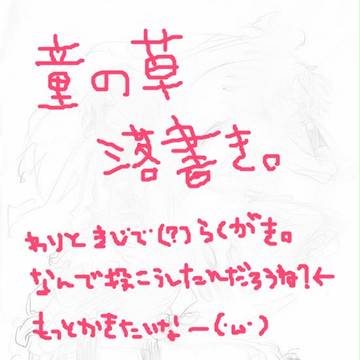 童の草
落書き。
わりとまじで(?)らくがき。
なんで投こうしたんだろうね?←
もっとかきたいなー(・ω・)